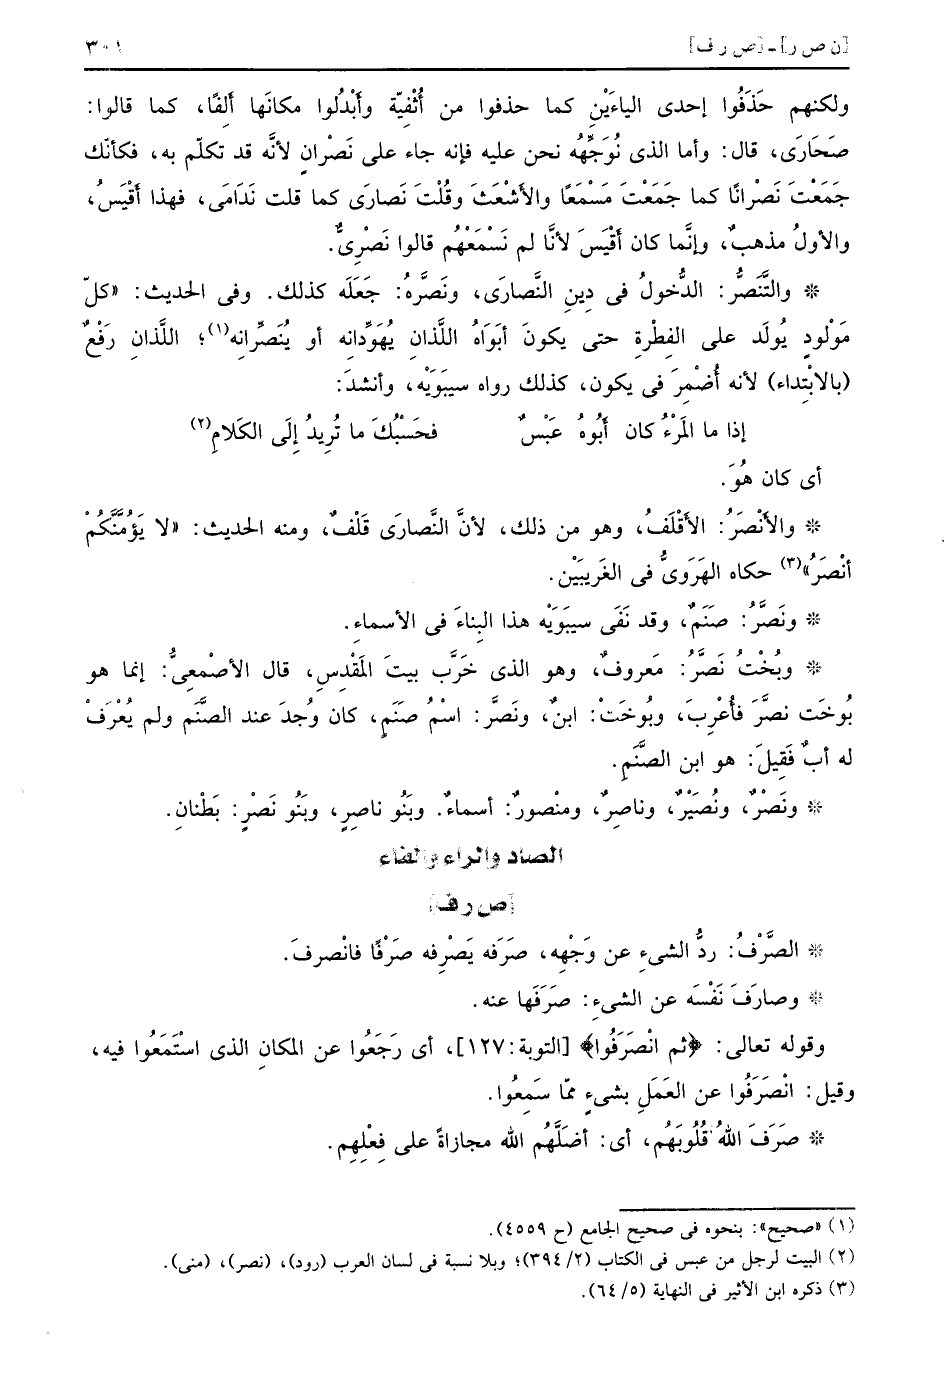 [ن ص ر] - [ص ر ف]
٣٠١
ولكنهم حَذَفُوا إحدى الياءَيْنِ كما حذفوا من أُثْفِيَّة وأَبْدَلُوا مكانَها ألفًا، كما قالوا:
صَحَارَى، قال: وأما الذى نُوَجِّهُه نحن عليه فإنه جاء على نَصْرانٍ لأنَّه قد تكلّم به، فكأنّك
جَمَعْتَ نَصْرانًا كما جَمَعْتَ مَسْمَعًا والأشْعَثَ وقُلْتَ نَصارى كما قلت نَدَامَى، فهذا أَقْيَسُ،
والأولُ مذهبٌ، وإنَّما كان أَقْيَسَ لأنَّا لم نَسْمَعْهُم قالوا نَصْرِىٌّ.
* والتَّنَصُّرُ: الدُّخولُ فى دِينِ النَّصارَى، ونَصَّرَهُ: جَعَلَه كذلك. وفى الحديث: «كلّ
مَوْلودٍ يُولَد على الفِطْرةِ حتى يكونَ أبَوَاهُ اللَّذان يُهَوِّدانِه أو يُنَصِّرانِه(١)؛ اللَّذانِ رَفْعٌ
(بالابْتداء) لأنه أُضْمِرَ فى يكون، كذلك رواه سيبَوَيْه، وأنشدَ:
إذا ما المَرْءُ كان أَبُوهُ عَبْسٌ فحَسْبُكَ ما تُرِيدُ إلَى الكَلامِ(٢)
أى كان هُوَ.
* والأَنْصَرُ: الأَقْلَفُ، وهو من ذلك، لأنَّ النَّصارَى قُلْفٌ، ومنه الحديث: «لا يَؤُمَّنَّكُمْ
أنْصَرُ»(٣) حكاه الهَرَوِىُّ فى الغَرِيبَيْن.
* ونَصَّرُ: صَنَمٌ، وقد نَفَى سيبَوَيْه هذا البِناءَ فى الأسماءِ.
* وبُخْتُ نَصَّرُ: مَعروفٌ، وهو الذى خَرَّب بيتَ المَقْدِسِ، قال الأصْمعِىُّ: إنما هو
بُوخَت نصَّرَ فأُعْرِبَ، وبُوخَتْ: ابنٌ، ونَصَّر: اسْمُ صَنَمٍ، كان وُجِدَ عند الصَّنَم ولم يُعْرَفْ
له أبٌ فَقِيلَ: هو ابن الصَّنَمِ.
* ونَصْرٌ، ونُصَيْرٌ، وناصِرٌ، ومنْصورٌ: أسماءٌ. وبَنُو ناصِرٍ، وبَنُو نَصْرٍ: بَطْنانِ.
الصاد والراء والفاء
[ص ر ف]
* الصَّرْفُ: ردُّ الشىءِ عن وَجْهِه، صَرَفَه يَصْرِفه صَرْفًا فانْصرفَ.
* وصارَفَ نَفْسَه عن الشىءِ: صَرَفَها عنه.
وقوله تعالى: ﴿ثم انْصَرَفُوا﴾ [التوبة:١٢٧]، أى رَجَعُوا عن المكانِ الذى اسْتَمَعُوا فيه،
وقيل: انْصَرَفُوا عن العَمَلِ بشىءٍ ممّا سَمِعُوا.
* صَرَفَ اللهُ قُلُوبَهُم، أى: أضلَّهُم الله مجازاةً على فِعْلِهم.
(١) «صحيح»: بنحوه فى صحيح الجامع (ح ٤٥٥٩).
(٢) البيت لرجل من عبس فى الكتاب (٢/ ٣٩٤)؛ وبلا نسبة فى لسان العرب (رود)، (نصر)، (منى).
(٣) ذكره ابن الأثير فى النهاية (٥/ ٦٤).